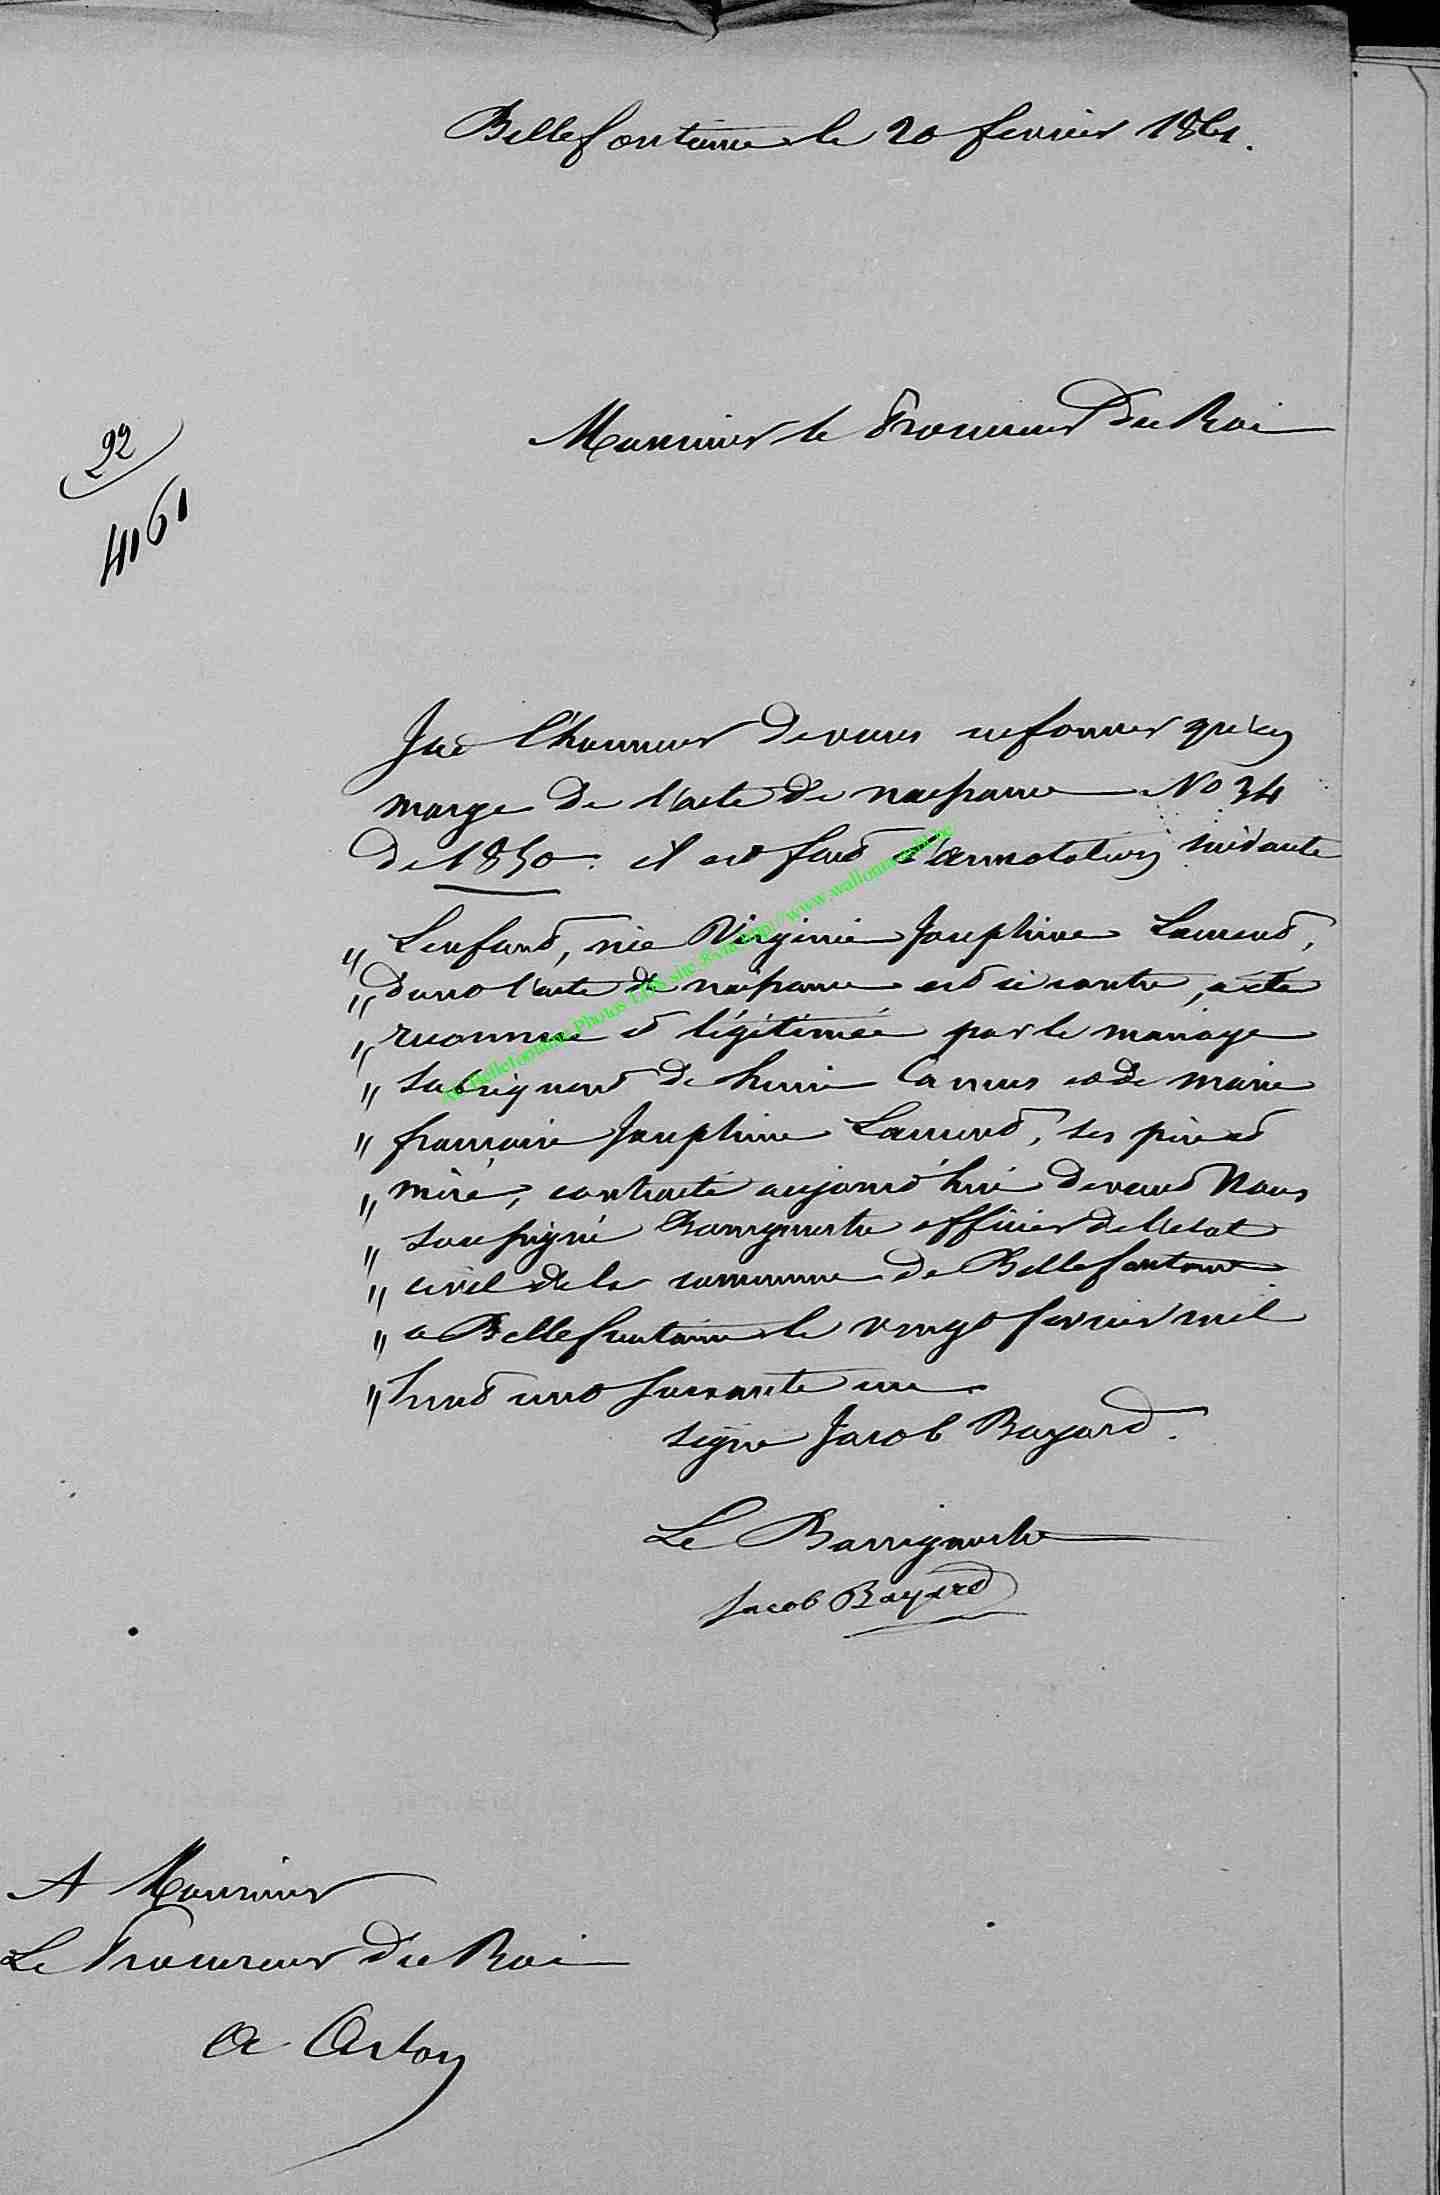 Bellefontaine le 20 fevrier 1861.
Monsieur le Procureur Du Roi
22
4161
J'ai l'honneur de vous informer qu'en
marge de l'acte de naissance No 34
de 1850. il est fait l'annotation suivante
" L'enfant, née Virginie Josephine Laurent,
" dont l'acte de naissance est ci contre, a été
" reconnue et légitimée par le mariage
" subsequent de henri Camus et de marie
" francoise Josephine Laurent, ses père et
" mère, contracté aujourd'hui devant Nous
" soussigné Bourgmestre officier de l'etat
" civil de la commune de Bellefontaine
" a Bellefontaine le vingt fevrier mil
" huit cent soixante un.
signé Jacob Bayard.
Le Bourgmestre
Jacob Bayard
A Monsieur
Le Procureur du Roi
a Arlon
Bellefontaine Photos LDS site Relie http://www.wallonica